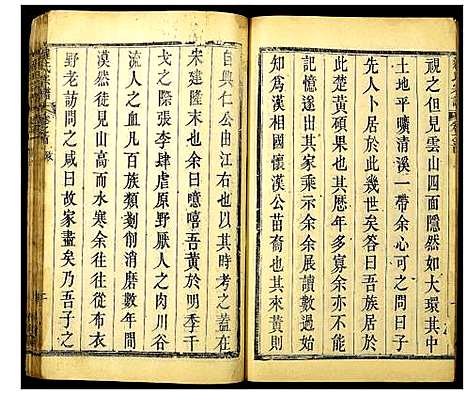 視之但見雲山四面隱然如大環其中
土地平曠清溪一帶余心可之問曰
先人卜居於此幾世矣答曰余居於
此楚黃碩果也其歷年多寡余亦不能
記憶遂出其家乘示余余展讀數過始
知爲相國懷漢公苗裔也其來黃則
自興仁公由江右徙此以其時考之蓋在
宋建隆末也余曰噫嘻吾黃於明季干
戈之際張李肆虐原野厭人之肉川谷
流人之血凡百族類剗削消磨數年間
漠然徒見山高而水寒余往往從布
野老訪問之咸曰故家盡矣乃吾子之